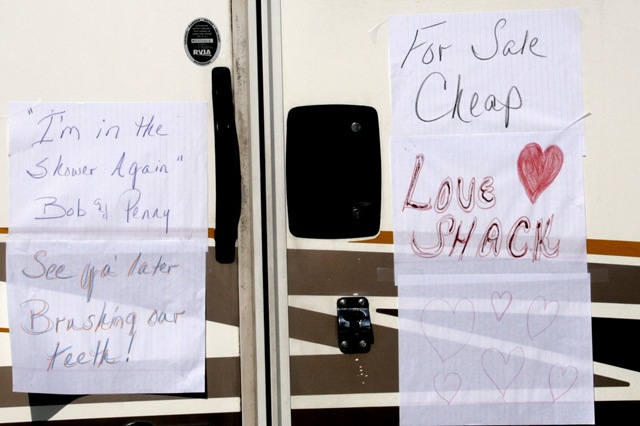 "I'm in the
Shower Again"
Bob & Penny
See ya' later
Brushing our
teeth!
RVIA
For Sale
Cheap
LOVE
SHACK